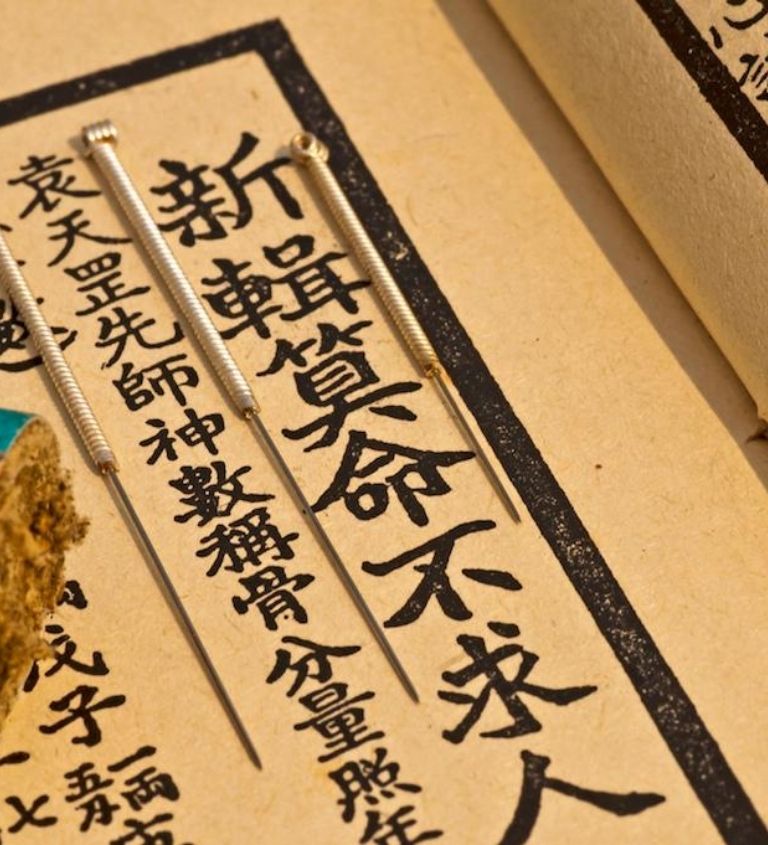 新輯算命不求人
袁天罡先師神數稱骨分量照年
戊子
一兩
七